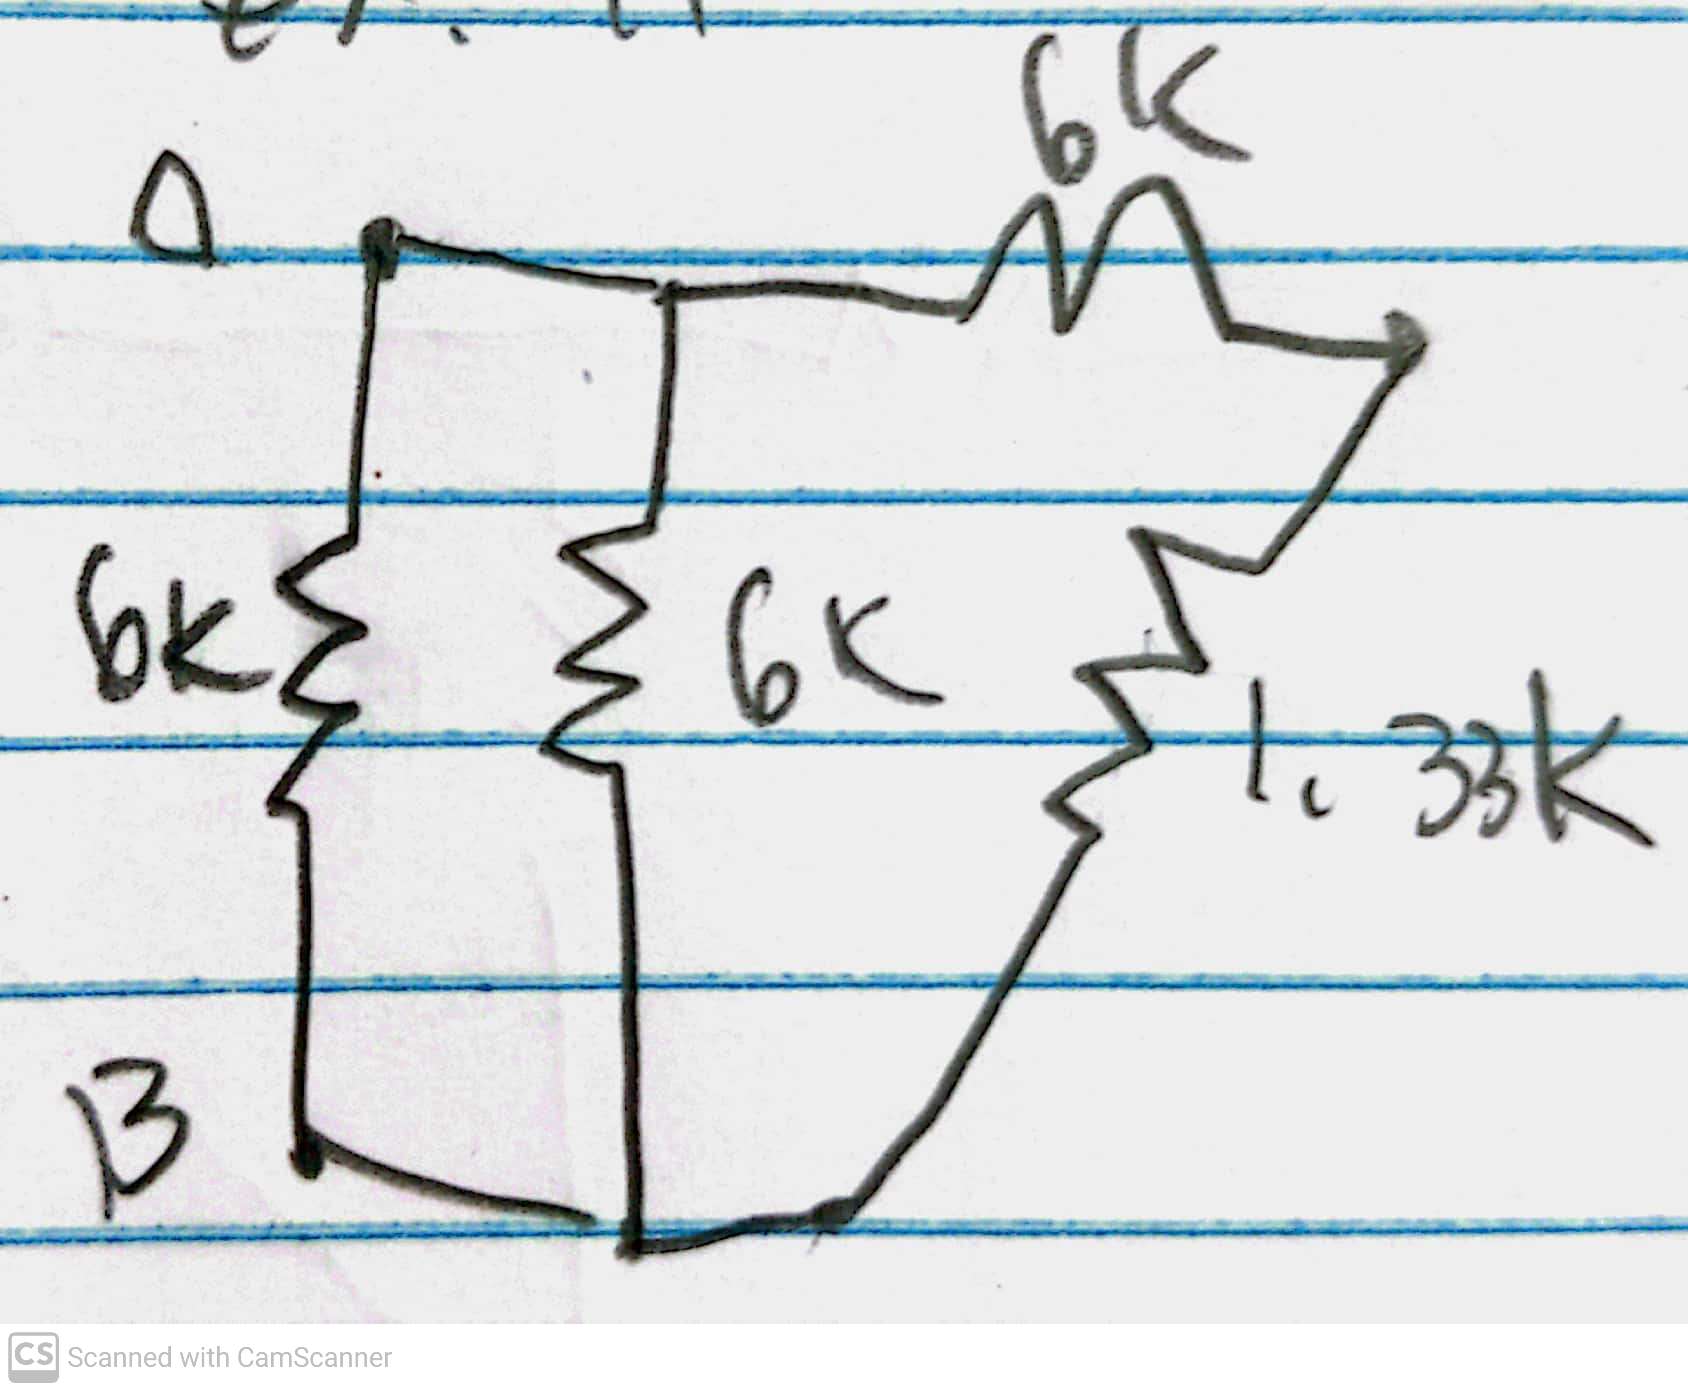 6K
A
6K
6K
1.33K
B
CS Scanned with CamScanner